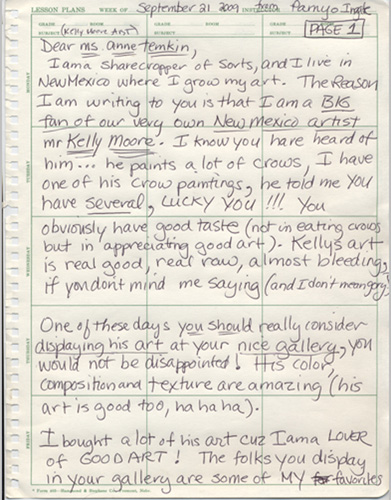 LESSON PLANS WEEK OF September 21 2009 from
GRADE ROOM GRADE ROOM GRADE
SUBJECT (Kelly Moore Art) SUBJECT SUBJECT PAGE 1
Dear ms. anne temkin,
I am a sharecropper of sorts, and I live in
New Mexico where I grow my art. The Reason
I am writing to you is that I am a BIG
fan of our very own New mexico artist
mr Kelly Moore. I know you have heard of
him... he paints a lot of crows, I have
one of his crow paintings, he told me you
have several, LUCKY YOU!!! You
obviously have good taste (not in eating crows
but in appreciating good art). Kellys art
is real good, real raw, almost bleeding,
if you dont mind me saying (and I don't mean gory)
One of these days you should really consider
displaying his art at your nice gallery, you
would not be disappointed! His color,
composition and texture are amazing (his
art is good too, ha ha ha).
I bought a lot of his art cuz I am a LOVER
of GOOD ART! The folks you display
in your gallery are some of MY favorites
MONDAY
TUESDAY
WEDNESDAY
THURSDAY
FRIDAY